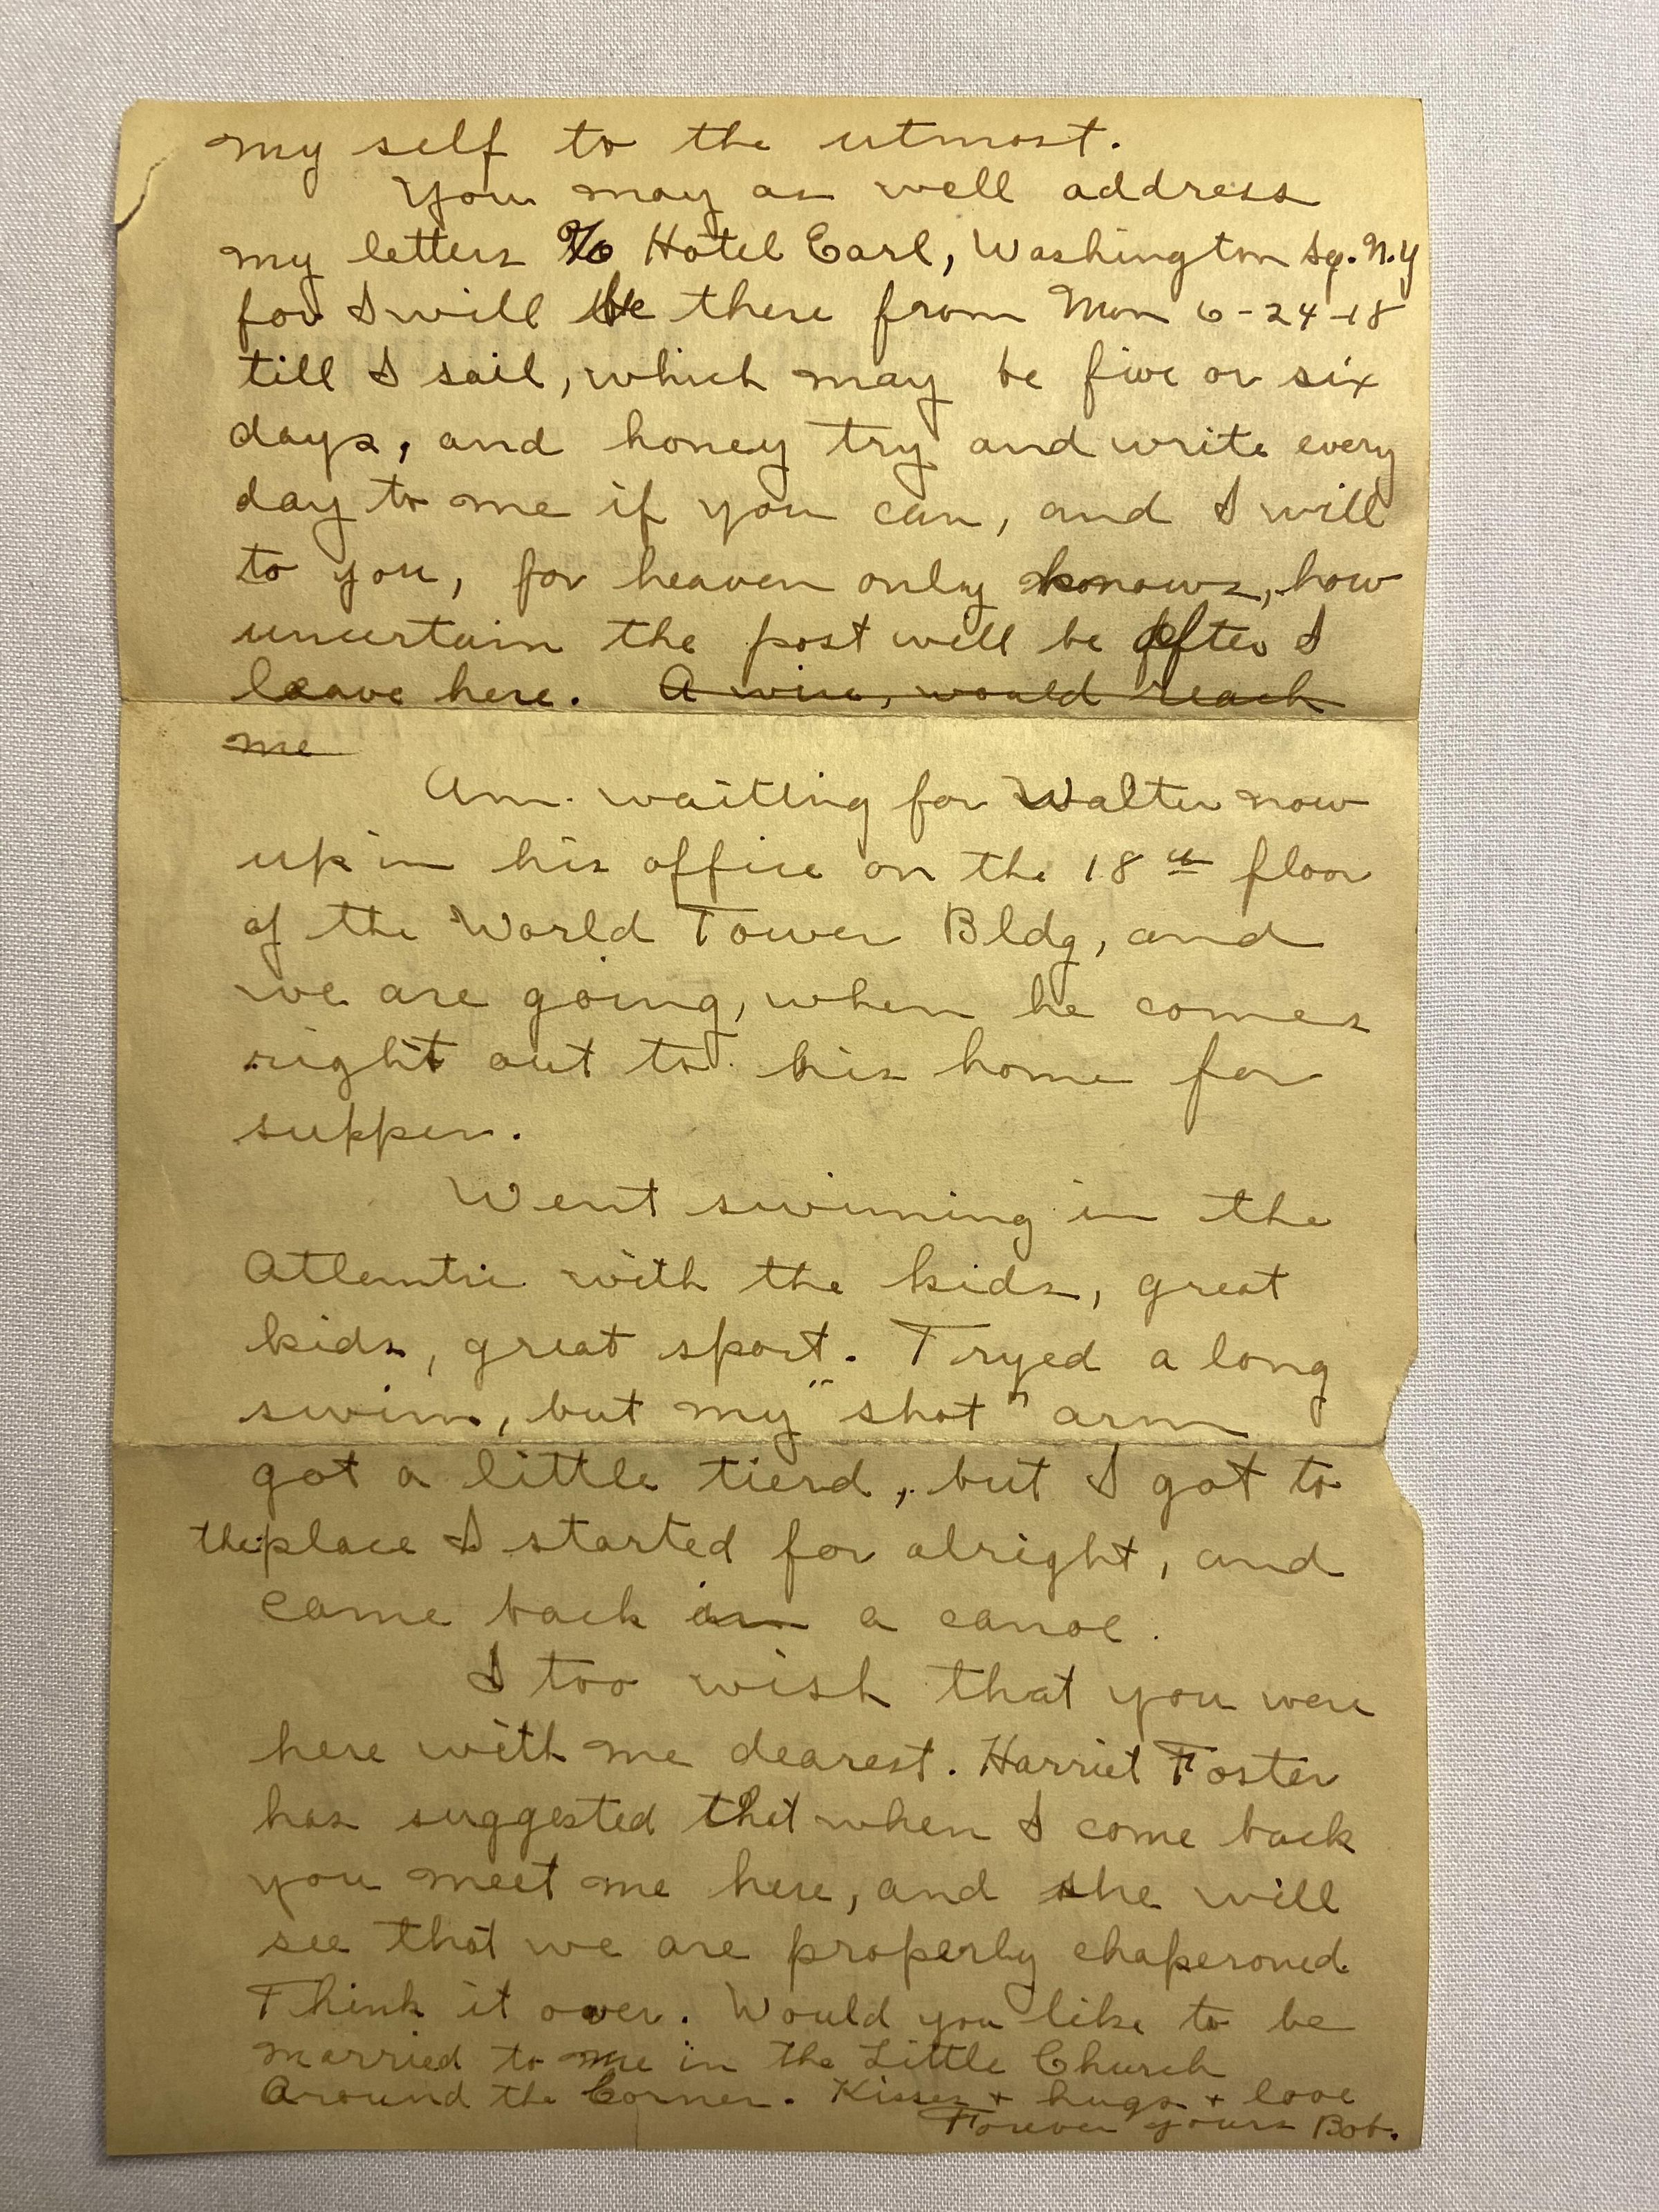 my self to the utmost.
You may as well address
my letters c/o Hotel Earl, Washington Sq. N.Y
for I will be there from Mon 6-24-18
till I sail, which may be five or six
days, and honey try and write every
day to me if you can, and I will
to you, for heaven only knows, how
uncertain the post will be after I
leave here. A wire, would reach
me
Am waiting for Walter now
up in his office on the 18th floor
of the World Tower Bldg, and
we are going, when he comes
right out to his home for
supper.
Went swiming in the
Atlantic with the kids, great
kids, great sport. Tryed a long
swim, but my "shot" arm
got a little tierd, but I got to
the place I started for alright, and
came back in a canoe.
I too wish that you were
here with me dearest. Harriet Foster
has suggested that when I come back
you meet me here, and she will
see that we are properly chaperoned.
Think it over. Would you like to be
married to me in the Little Church
Around the Corner. Kisses + hugs + love
Forever yours Bob.